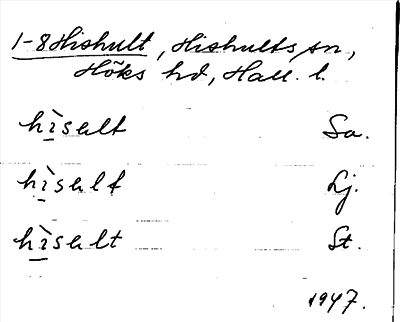 1-8 Hishult, Hishults sn,
Höks hd, Hall. l.
hì̱sult Sa.
hì̱sult Lj.
hì̱sult St.
1947.